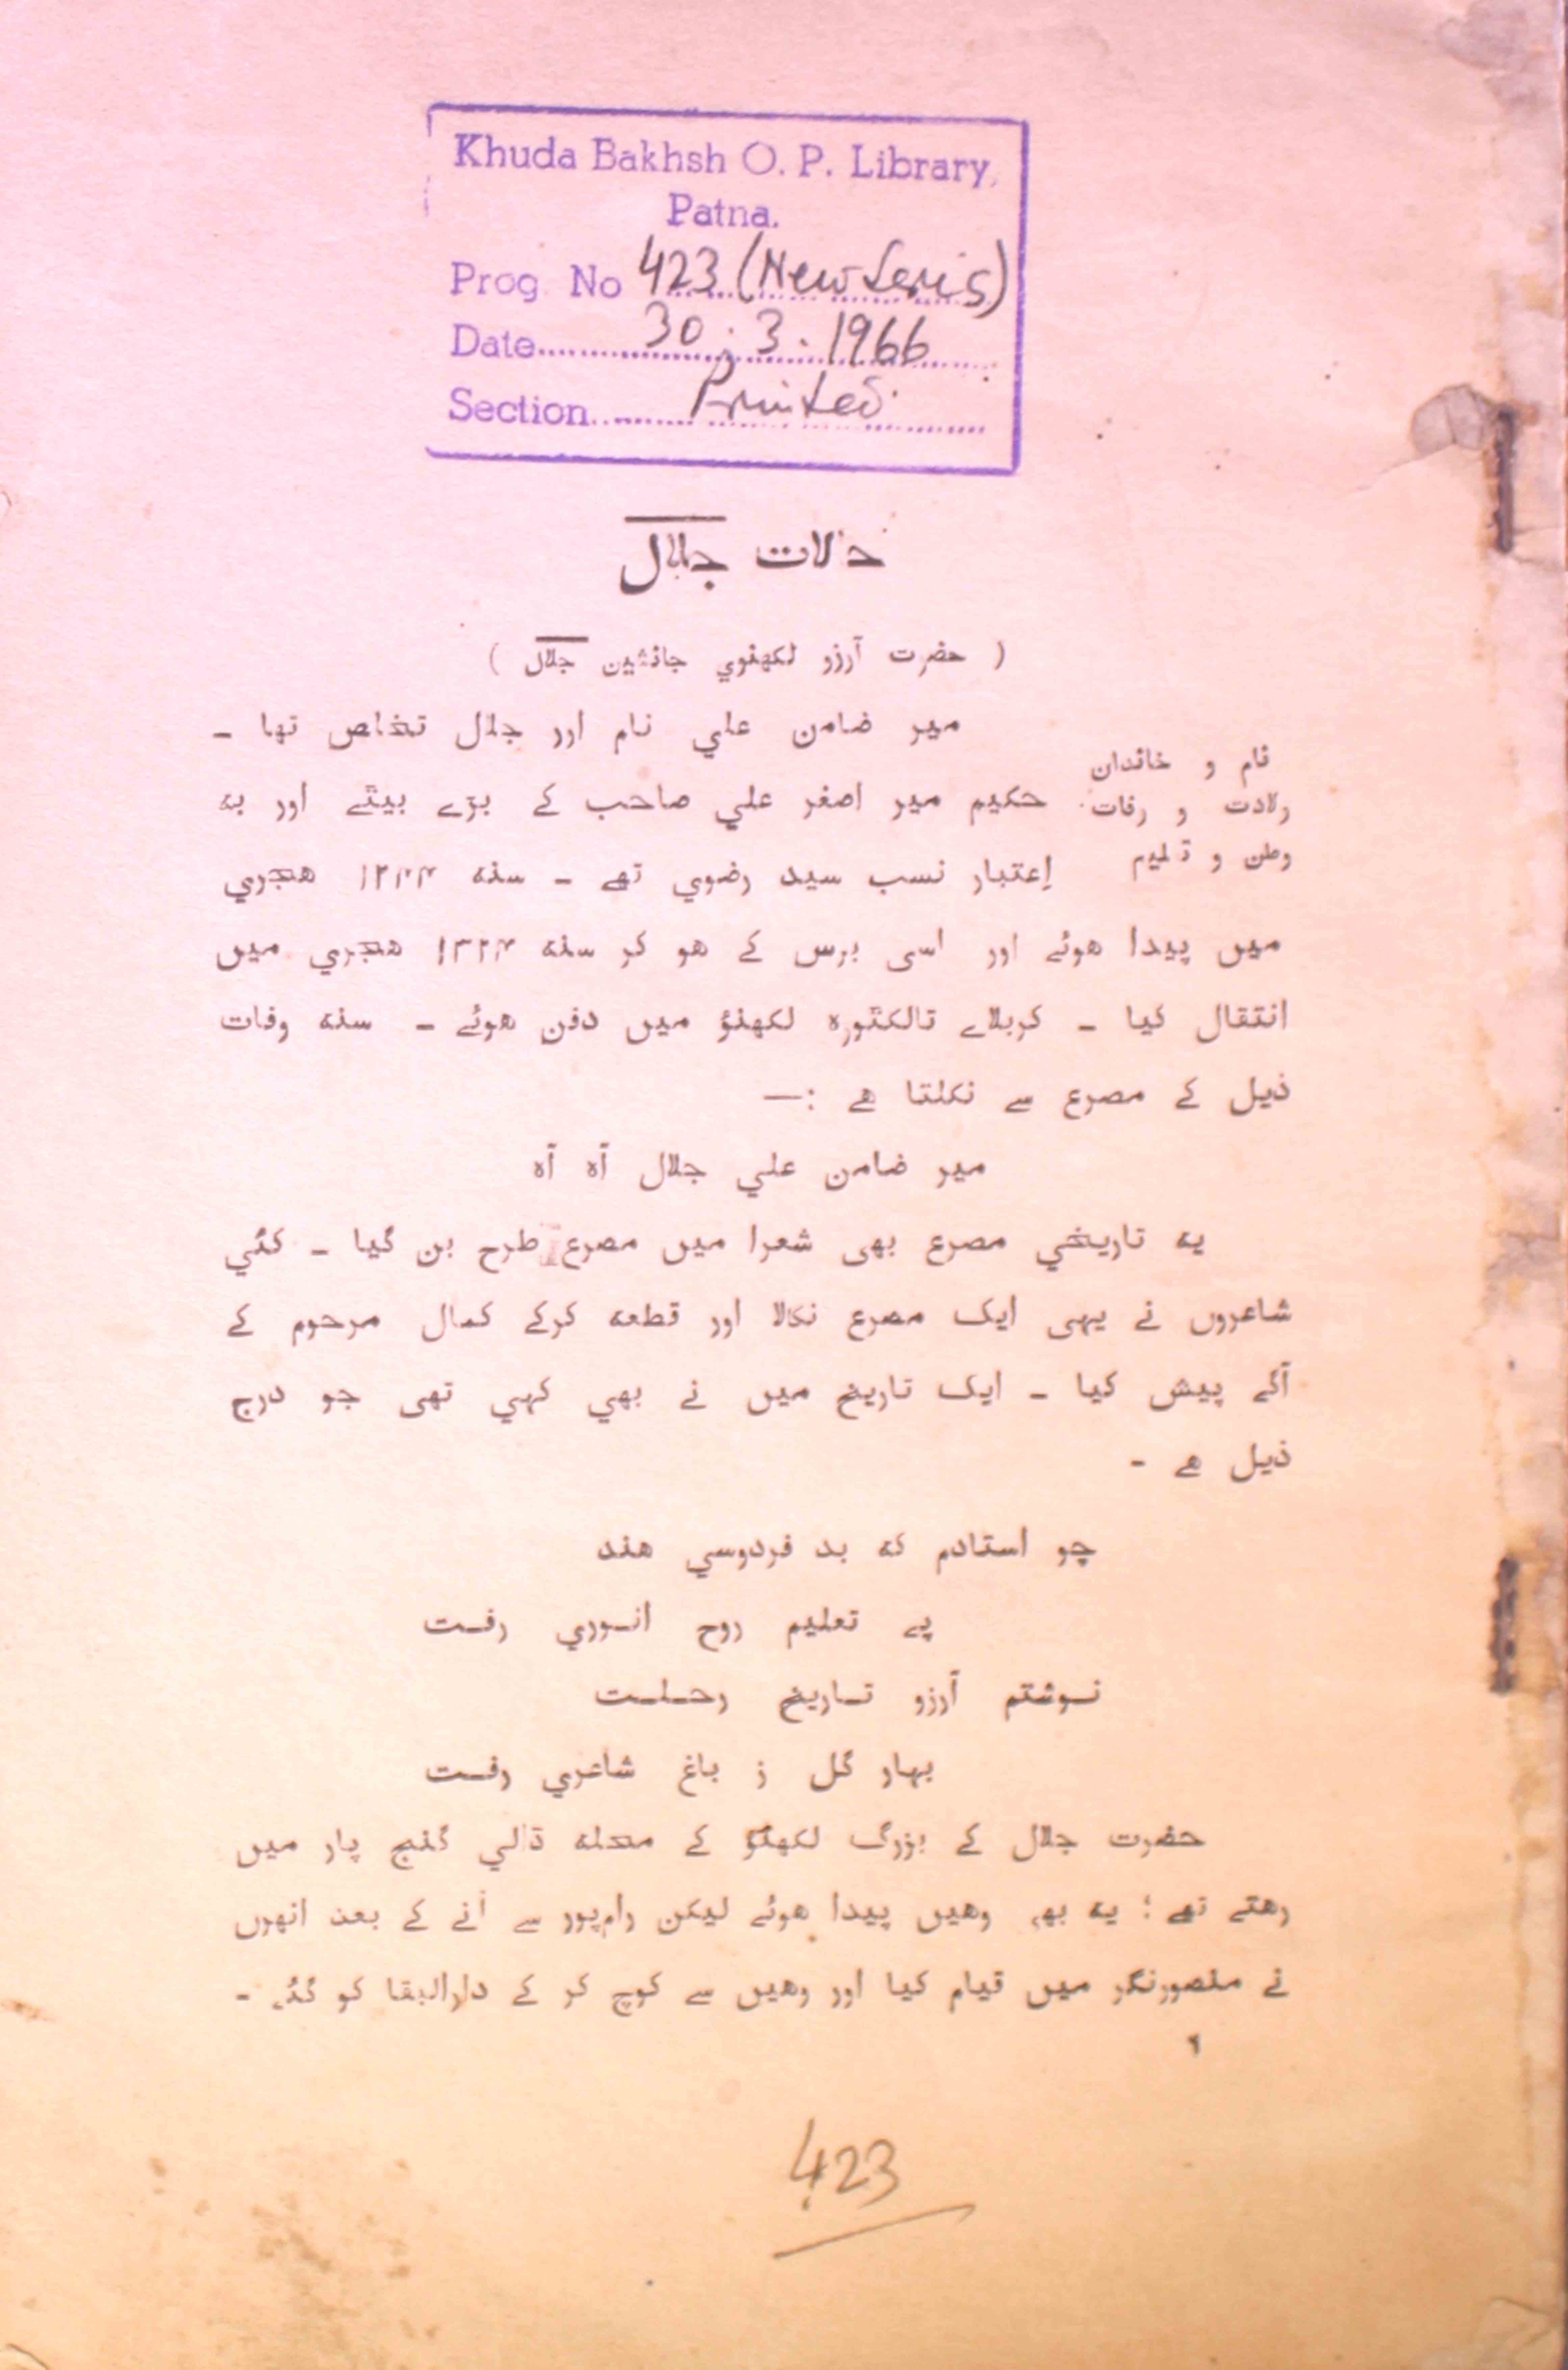 Khuda Bakhsh O. P. Library,
Patna.
Prog. No 423 (New Seris)
Date 30.3.1966
Section Printed
حالات جلال
( حضرت آرزو لکھنوي جانشین جلال )
میر ضامن علي نام اور جلال تخلص تھا ـ
نام و خاندان
ولادت و وفات
وطن و تعلیم
حکیم میر اصغر علي صاحب کے بڑے بیٹے اور بہ
اِعتبار نسب سید رضوي تھے ـ سنہ ۱۲۴۴ ھجري
میں پیدا ھوئے اور اسی برس کے ھو کر سنہ ۱۳۲۴ ھجري میں
انتقال کیا ـ کربلاے تالکٹورہ لکھنؤ میں دفن ھوئے ـ سنہ وفات
ذیل کے مصرع سے نکلتا ھے :—
میر ضامن علي جلال آہ آہ
یہ تاریخي مصرع بھی شعرا میں مصرع طرح بن گیا ـ کئي
شاعروں نے یہی ایک مصرع نکالا اور قطعہ کرکے کمال مرحوم کے
آگے پیش کیا ـ ایک تاریخ میں نے بھي کہي تھی جو درج
ذیل ھے ـ
چو استادم کہ بد فردوسي ھند
پے تعلیم روح انـوري رفـت
نـوشتم آرزو تـاریخ رحـلـت
بہار گل ز باغ شاعري رفـت
حضرت جلال کے بزرگ لکھنؤ کے محلہ ڈالي گنج پار میں
رھتے تھے ؛ یہ بھی وھیں پیدا ھوئے لیکن رام‌پور سے آنے کے بعد انھوں
نے منصورنگر میں قیام کیا اور وھیں سے کوچ کر کے دارالبقا کو گئے ـ
423